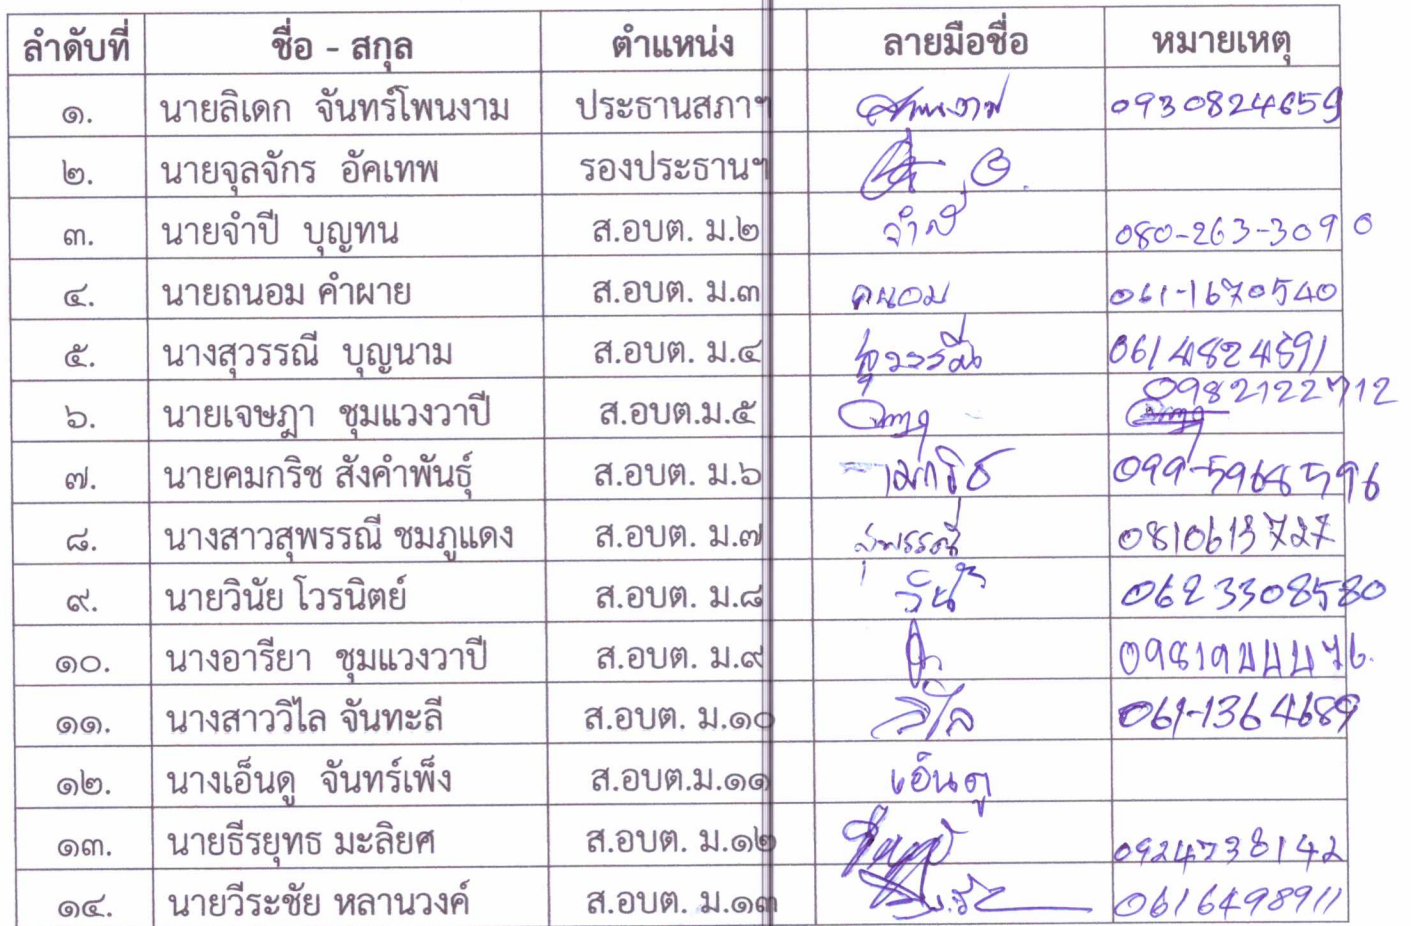 ลำดับที่ ชื่อ - สกุล ตำแหน่ง ลายมือชื่อ หมายเหตุ
๑. นายลิเดก จันทร์โพนงาม ประธานสภาฯ 0930824659
๒. นายจุลจักร อัคเทพ รองประธานฯ
๓. นายจำปี บุญทน ส.อบต. ม.๒ จำปี 080-263-3090
๔. นายถนอม คำผาย ส.อบต. ม.๓ ถนอม 061-1670540
๕. นางสุวรรณี บุญนาม ส.อบต. ม.๔ สุวรรณี 0614824591
๖. นายเจษฎา ชุมแวงวาปี ส.อบต.ม.๕ 0982122712
๗. นายคมกริช สังคำพันธุ์ ส.อบต. ม.๖ 099-5968596
๘. นางสาวสุพรรณี ชมภูแดง ส.อบต. ม.๗ สุพรรณี
๙. นายวินัย โวรนิตย์ ส.อบต. ม.๘ 0623308580
๑๐. นางอารียา ชุมแวงวาปี ส.อบต. ม.๙
๑๑. นางสาววิไล จันทะลี ส.อบต. ม.๑๐ วิไล 061-1364689
๑๒. นางเอ็นดู จันทร์เพ็ง ส.อบต.ม.๑๑ เอ็นดู
๑๓. นายธีรยุทธ มะลิยศ ส.อบต. ม.๑๒ 0924738142
๑๔. นายวีระชัย หลานวงค์ ส.อบต. ม.๑๓ 0616498911